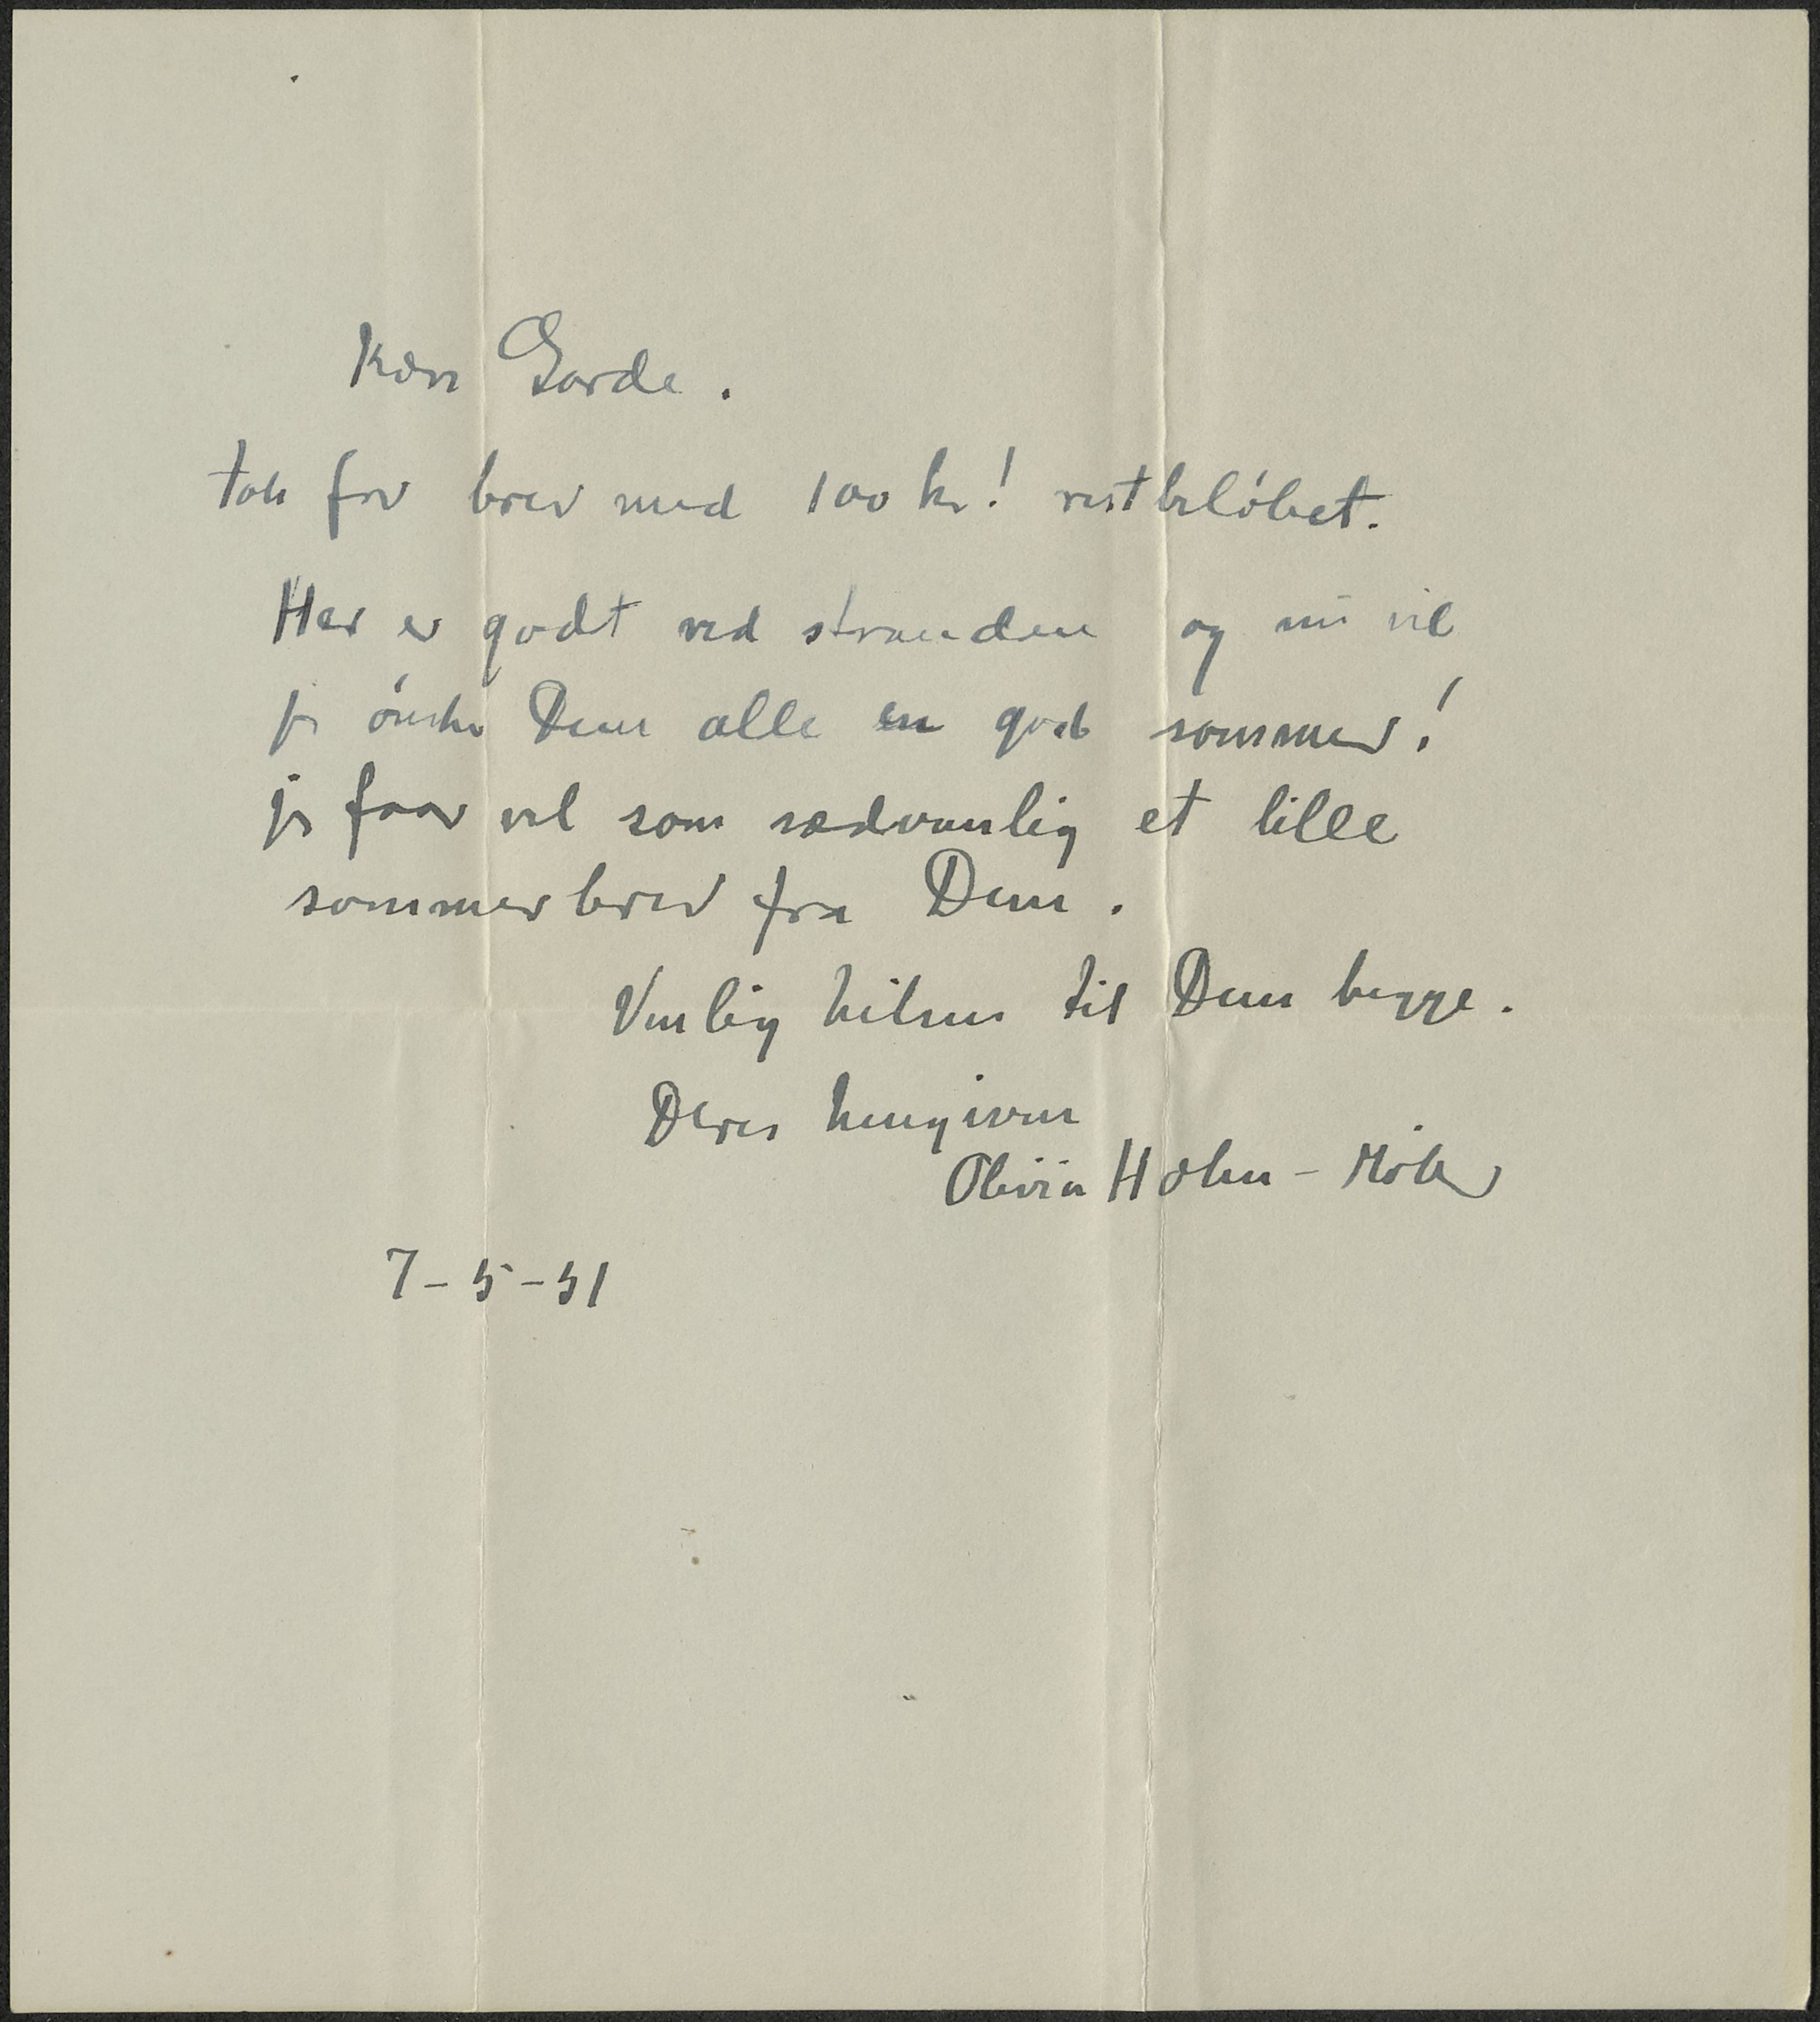 Kære Garde.
tak for brev med 100 kr! restbeløbet.
Her er godt ved stranden og nu vil
jeg ønske Dem alle en god sommer!
jeg faar vel som sædvanlig et lille
sommerbrev fra Dem.
Venlig hilsen til Dem begge.
Deres hengivne
Olivia Holm-Møller
7-5-51